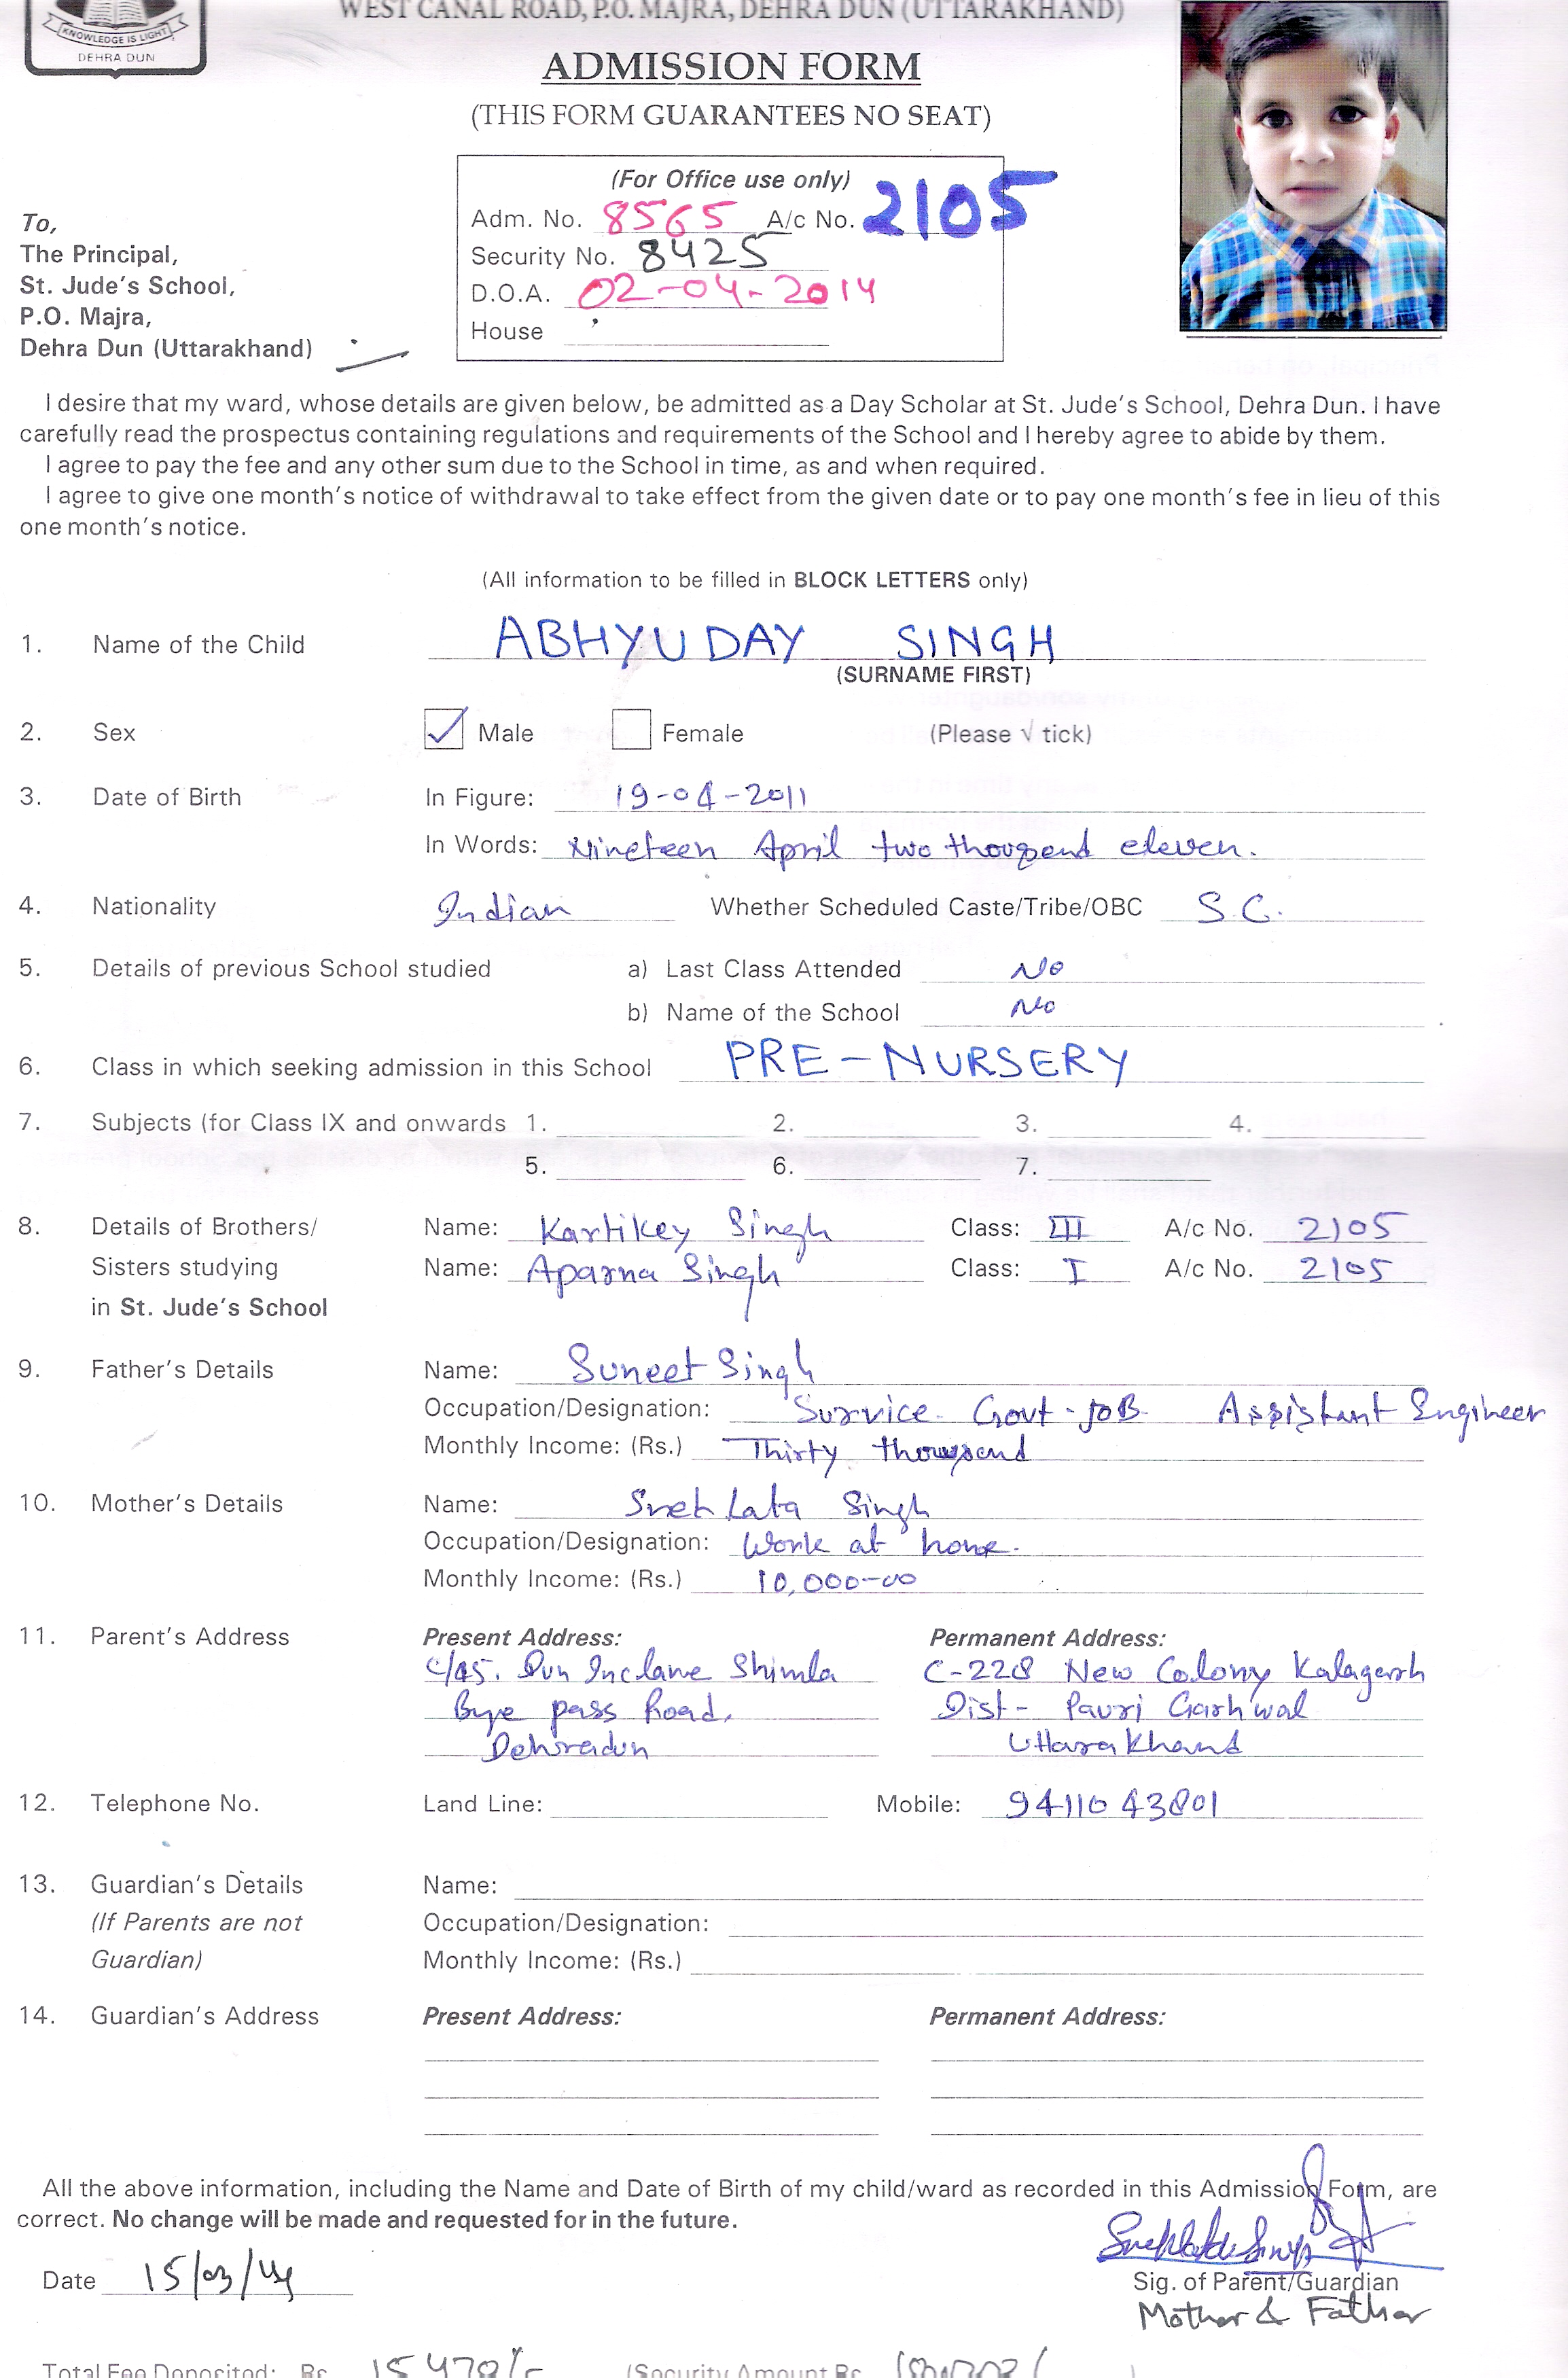 WEST CANAL ROAD, P.O. MAJRA, DEHRA DUN (UTTARAKHAND)
KNOWLEDGE IS LIGHT
DEHRA DUN
ADMISSION FORM
(THIS FORM GUARANTEES NO SEAT)
(For Office use only)
Adm. No. 8565 A/c No. 2105
Security No. 8425
D.O.A. 02-04-2014
House
To,
The Principal,
St. Jude's School,
P.O. Majra,
Dehra Dun (Uttarakhand)
I desire that my ward, whose details are given below, be admitted as a Day Scholar at St. Jude's School, Dehra Dun. I have
carefully read the prospectus containing regulations and requirements of the School and I hereby agree to abide by them.
I agree to pay the fee and any other sum due to the School in time, as and when required.
I agree to give one month's notice of withdrawal to take effect from the given date or to pay one month's fee in lieu of this
one month's notice.
(All information to be filled in BLOCK LETTERS only)
1. Name of the Child ABHYUDAY SINGH
(SURNAME FIRST)
2. Sex ✓ Male Female (Please √ tick)
3. Date of Birth In Figure: 19-04-2011
In Words: Nineteen April two thousand eleven.
4. Nationality Indian Whether Scheduled Caste/Tribe/OBC S.C.
5. Details of previous School studied a) Last Class Attended No
b) Name of the School No
6. Class in which seeking admission in this School PRE-NURSERY
7. Subjects (for Class IX and onwards 1. 2. 3. 4.
5. 6. 7.
8. Details of Brothers/ Name: Kartikey Singh Class: III A/c No. 2105
Sisters studying Name: Aparna Singh Class: I A/c No. 2105
in St. Jude's School
9. Father's Details Name: Suneet Singh
Occupation/Designation: Survice Govt-JoB Assistant Engineer
Monthly Income: (Rs.) Thirty thousand
10. Mother's Details Name: Sneh Lata Singh
Occupation/Designation: Work at home.
Monthly Income: (Rs.) 10,000-00
11. Parent's Address Present Address: Permanent Address:
C/45. Dun Inclave Shimla C-228 New Colony Kalagarh
Bye pass Road, Dist- Pauri Garhwal
Dehradun Uttarakhand
12. Telephone No. Land Line: Mobile: 9411043801
13. Guardian's Details Name:
(If Parents are not Occupation/Designation:
Guardian) Monthly Income: (Rs.)
14. Guardian's Address Present Address: Permanent Address:
All the above information, including the Name and Date of Birth of my child/ward as recorded in this Admission Form, are
correct. No change will be made and requested for in the future.
Date 15/03/14
Snehlata Singh
Sig. of Parent/Guardian
Mother & Father
Total Fee Deposited: Rs. (Security Amount Rs. )